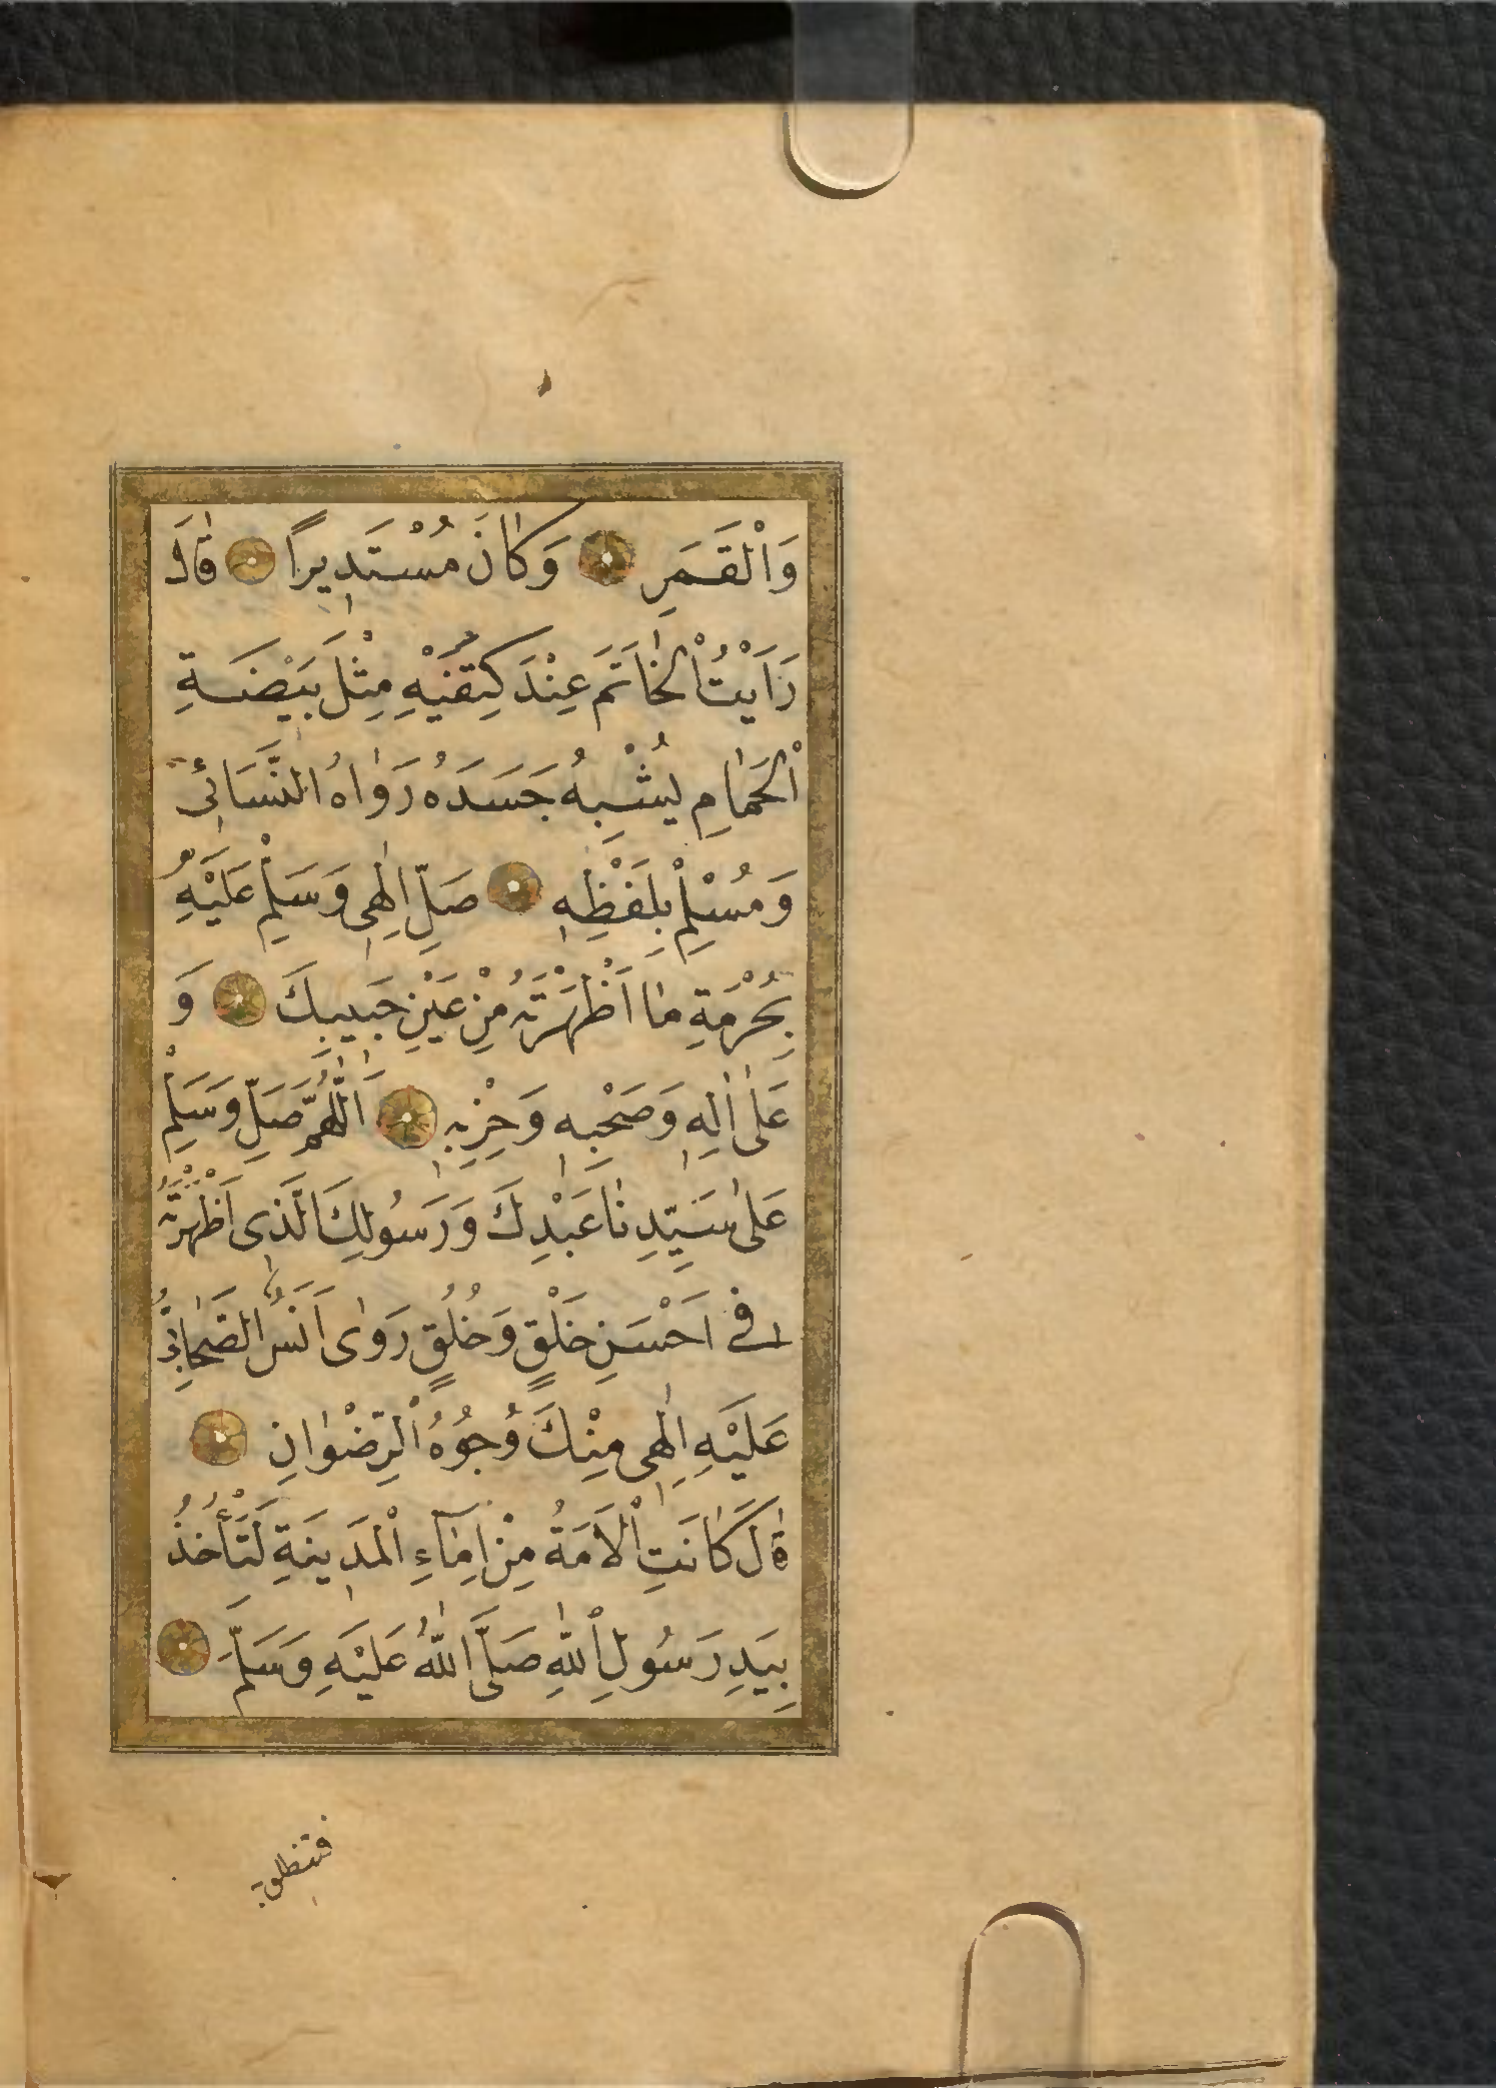 وَالْقَمَرِ وَكَانَ مُسْتَدِيرًا قَالَ
رَاَيْتُ الْخَاتَمَ عِنْدَ كِتِفَيْهِ مِثْلَ بَيْضَةِ
الْحَمَامِ يُشْبِهُ جَسَدَهُ رَوَاهُ النَّسَائِىُّ
وَمُسْلِمْ بِلَفْظِهِ صَلِّ اِلٰهِى وَسَلِّمْ عَلَيْهِ
بِحُرْمَةِ مَا اَظْهَرْتَهُ مِنْ عَيْنِ حَبِيبِكَ وَ
عَلٰى اٰلِهِ وَصَحْبِهِ وَحِزْبِهِ اَللّٰهُمَّ صَلِّ وَسَلِّمْ
عَلٰى سَيِّدِنَا عَبْدِكَ وَرَسُولِكَ الَّذِى اَظْهَرْتَهُ
فِى اَحْسَنِ خَلْقٍ وَخُلُقٍ رَوٰى اَنَسُ الصَّحَابِىُّ
عَلَيْهِ اِلٰهِى مِنْكَ وُجُوهُ الرِّضْوَانِ
قَالَ كَانَتِ الْاَمَةُ مِنْ اِمَآءِ الْمَدِينَةِ لَتَأْخُذُ
بِيَدِ رَسُولِ اللّٰهِ صَلَّى اللّٰهُ عَلَيْهِ وَسَلَّمَ
فتنطلق به